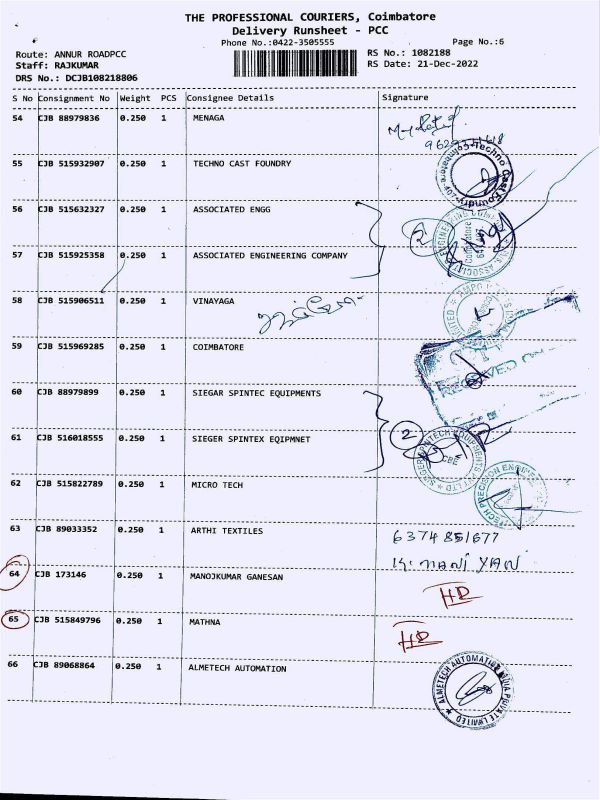 THE PROFESSIONAL COURIERS, Coimbatore
Delivery Runsheet - PCC
Phone No.:0422-3505555
Page No.:6
Route: ANNUR ROADPCC
RS No.: 1082188
Staff: RAJKUMAR
RS Date: 21-Dec-2022
DRS No.: DCJB108218806
S No Consignment No Weight PCS Consignee Details Signature
54 CJB 88979836 0.250 1 MENAGA
55 CJB 515932907 0.250 1 TECHNO CAST FOUNDRY
56 CJB 515632327 0.250 1 ASSOCIATED ENGG
2
57 CJB 515925358 0.250 1 ASSOCIATED ENGINEERING COMPANY
58 CJB 515906511 0.250 1 VINAYAGA
59 CJB 515969285 0.250 1 COIMBATORE
60 CJB 88979899 0.250 1 SIEGAR SPINTEC EQUIPMENTS
2
61 CJB 516018555 0.250 1 SIEGER SPINTEX EQIPMNET
62 CJB 515822789 0.250 1 MICRO TECH
63 CJB 89033352 0.250 1 ARTHI TEXTILES
6374851677
64 CJB 173146 0.250 1 MANOJKUMAR GANESAN
65 CJB 515849796 0.250 1 MATHNA
66 CJB 89068864 0.250 1 ALMETECH AUTOMATION